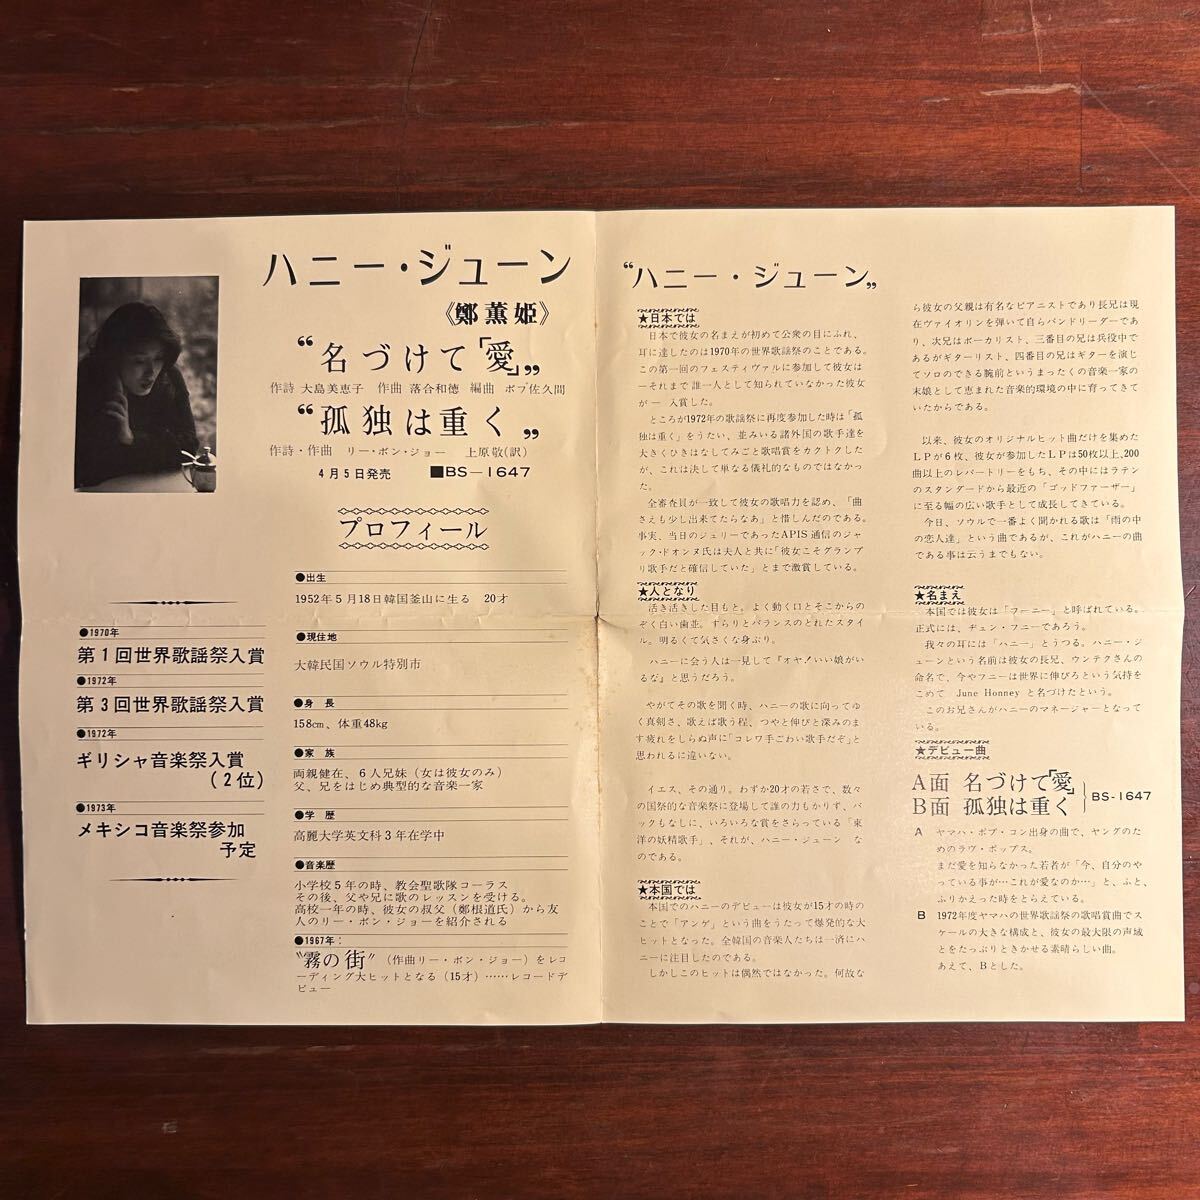 ハニー・ジューン
《鄭薫姫》
“名づけて「愛」”
作詩 大島美恵子 作曲 落合和徳 編曲 ボブ佐久間
“孤独は重く”
作詩・作曲 リー・ボン・ジョー 上原敬(訳)
4月5日発売 ■BS-1647
プロフィール
●1970年
第1回世界歌謡祭入賞
●1972年
第3回世界歌謡祭入賞
●1972年
ギリシャ音楽祭入賞
(2位)
●1973年
メキシコ音楽祭参加
予定
●出生
1952年5月18日韓国釜山に生る 20才
●現住地
大韓民国ソウル特別市
●身長
158cm、体重48kg
●家族
両親健在、6人兄妹(女は彼女のみ)
父、兄をはじめ典型的な音楽一家
●学歴
高麗大学英文科3年在学中
●音楽歴
小学校5年の時、教会聖歌隊コーラス
その後、父や兄に歌のレッスンを受ける。
高校一年の時、彼女の叔父(鄭根道氏)から友
人のリー・ボン・ジョーを紹介される
●1967年:
“霧の街”(作曲リー・ボン・ジョー)をレコ
ーディング大ヒットとなる(15才)……レコードデ
ビュー
“ハニー・ジューン”
★日本では
日本で彼女の名まえが初めて公衆の目にふれ、
耳に達したのは1970年の世界歌謡祭のことである。
この第一回のフェスティヴァルに参加して彼女は
―それまで誰一人として知られていなかった彼女
が― 入賞した。
ところが1972年の歌謡祭に再度参加した時は「孤
独は重く」をうたい、並みいる諸外国の歌手達を
大きくひきはなしてみごと歌唱賞をカクトクした
が、これは決して単なる儀礼的なものではなかっ
た。
全審査員が一致して彼女の歌唱力を認め、「曲
さえも少し出来てたらなあ」と惜しんだのである。
事実、当日のジュリーであったAPIS通信のジャ
ック・ドオンヌ氏は夫人と共に「彼女こそグランプ
リ歌手だと確信していた」とまで激賞している。
★人となり
活き活きした目もと。よく動く口とそこからの
ぞく白い歯並。すらりとバランスのとれたスタイ
ル。明るくて気さくな身ぶり。
ハニーに会う人は一見して『オヤ!いい娘がい
るな』と思うだろう。
やがてその歌を聞く時、ハニーの歌に向ってゆ
く真剣さ、歌えば歌う程、つやと伸びと深みのま
す疲れをしらぬ声に「コレワ手ごわい歌手だぞ」と
思われるに違いない。
イエス、その通り。わずか20才の若さで、数々
の国際的な音楽祭に登場して誰の力もかりず、バ
ックもなしに、いろいろな賞をさらっている「東
洋の妖精歌手」、それが、ハニー・ジューン な
のである。
★本国では
本国でのハニーのデビューは彼女が15才の時の
ことで「アンゲ」という曲をうたって爆発的な大
ヒットとなった。全韓国の音楽人たちは一済にハ
ニーに注目したのである。
しかしこのヒットは偶然ではなかった。何故な
ら彼女の父親は有名なピアニストであり長兄は現
在ヴァイオリンを弾いて自らバンドリーダーであ
り、次兄はボーカリスト、三番目の兄は兵役中で
あるがギターリスト、四番目の兄はギターを演じ
てソロのできる腕前というまったくの音楽一家の
末娘として恵まれた音楽的環境の中に育ってきて
いたからである。
以来、彼女のオリジナルヒット曲だけを集めた
LPが6枚、彼女が参加したLPは50枚以上、200
曲以上のレパートリーをもち、その中にはラテン
のスタンダードから最近の「ゴッドファーザー」
に至る幅の広い歌手として成長してきている。
今日、ソウルで一番よく聞かれる歌は「雨の中
の恋人達」という曲であるが、これがハニーの曲
である事は云うまでもない。
★名まえ
本国では彼女は「フーニー」と呼ばれている。
正式には、チュン・フニーであろう。
我々の耳には「ハニー」とうつる。ハニー・ジ
ューンという名前は彼女の長兄、ウンテクさんの
命名で、今やフニーは世界に伸びろという気持を
こめて June Honney と名づけたという。
このお兄さんがハニーのマネージャーとなって
いる。
★デビュー曲
A面 名づけて「愛」
B面 孤独は重く
BS-1647
A ヤマハ・ポプ・コン出身の曲で、ヤングのた
めのラヴ・ポップス。
まだ愛を知らなかった若者が「今、自分のや
っている事が…これが愛なのか…」と、ふと、
ふりかえった時をとらえている。
B 1972年度ヤマハの世界歌謡祭の歌唱賞曲でス
ケールの大きな構成と、彼女の最大限の声域
とをたっぷりときかせる素晴らしい曲。
あえて、Bとした。